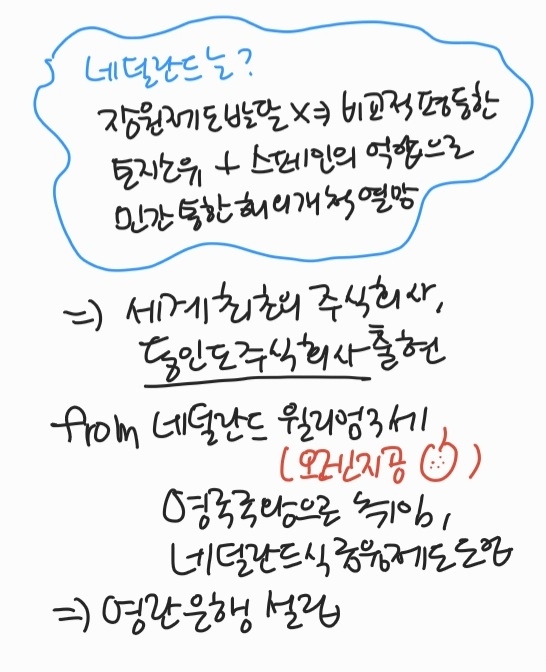 네덜란드는?
장원제도발달 X⇒ 비교적 평등한
토지소유 + 스페인의 억압으로
민간 통한 해외개척 열망
⇒) 세계최초의 주식회사,
동인도주식회사 출현
from 네덜란드 윌리엄3세
(오렌지공)
영국국왕으로 취임,
네덜란드식 금융제도 도입
⇒) 영란은행 설립